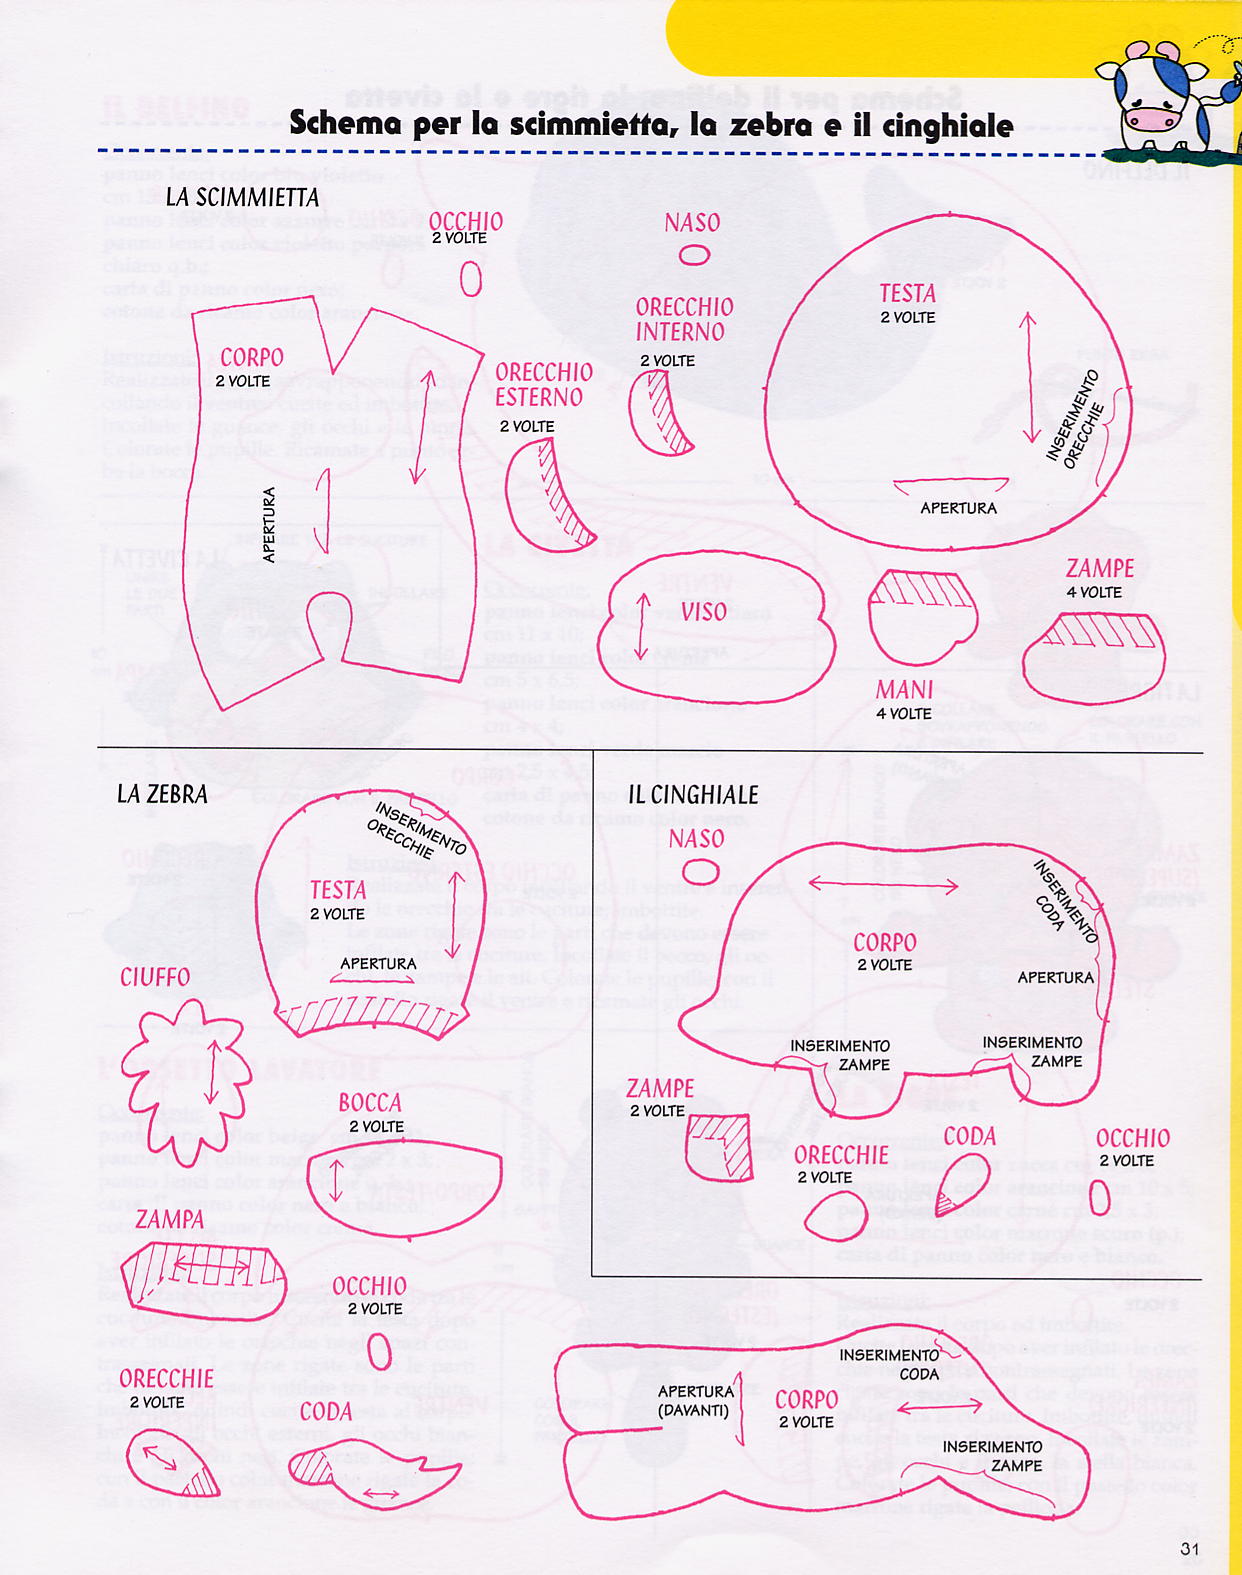 Schema per la scimmietta, la zebra e il cinghiale
LA SCIMMIETTA
OCCHIO
2 VOLTE
NASO
ORECCHIO
INTERNO
2 VOLTE
TESTA
2 VOLTE
INSERIMENTO
ORECCHIE
APERTURA
CORPO
2 VOLTE
APERTURA
ORECCHIO
ESTERNO
2 VOLTE
VISO
MANI
4 VOLTE
ZAMPE
4 VOLTE
LA ZEBRA
INSERIMENTO
ORECCHIE
TESTA
2 VOLTE
APERTURA
CIUFFO
BOCCA
2 VOLTE
ZAMPA
OCCHIO
2 VOLTE
ORECCHIE
2 VOLTE
CODA
IL CINGHIALE
NASO
CORPO
2 VOLTE
INSERIMENTO
CODA
APERTURA
INSERIMENTO
ZAMPE
INSERIMENTO
ZAMPE
ZAMPE
2 VOLTE
ORECCHIE
2 VOLTE
CODA
OCCHIO
2 VOLTE
INSERIMENTO
CODA
APERTURA
(DAVANTI)
CORPO
2 VOLTE
INSERIMENTO
ZAMPE
31